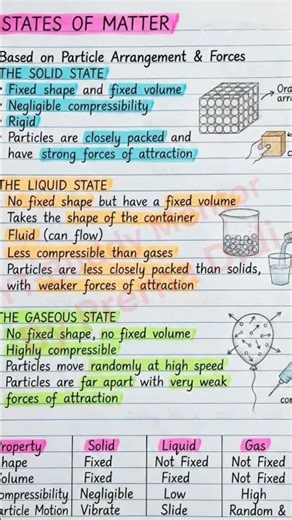 STATES OF MATTER
Based on Particle Arrangement & Forces
THE SOLID STATE
• Fixed shape and fixed volume
• Negligible compressibility
• Rigid
• Particles are closely packed and
have strong forces of attraction
THE LIQUID STATE
No fixed shape but have a fixed volume
Takes the shape of the container
Fluid (can flow)
Less compressible than gases
Particles are less closely packed than solids,
with weaker forces of attraction
THE GASEOUS STATE
No fixed shape, no fixed volume
Highly compressible
Particles move randomly at high speed
Particles are far apart with very weak
forces of attraction
Property Solid Liquid Gas
Shape Fixed Not Fixed Not Fixed
Volume Fixed Fixed Not Fixed
Compressibility Negligible Low High
Particle Motion Vibrate Slide Random &